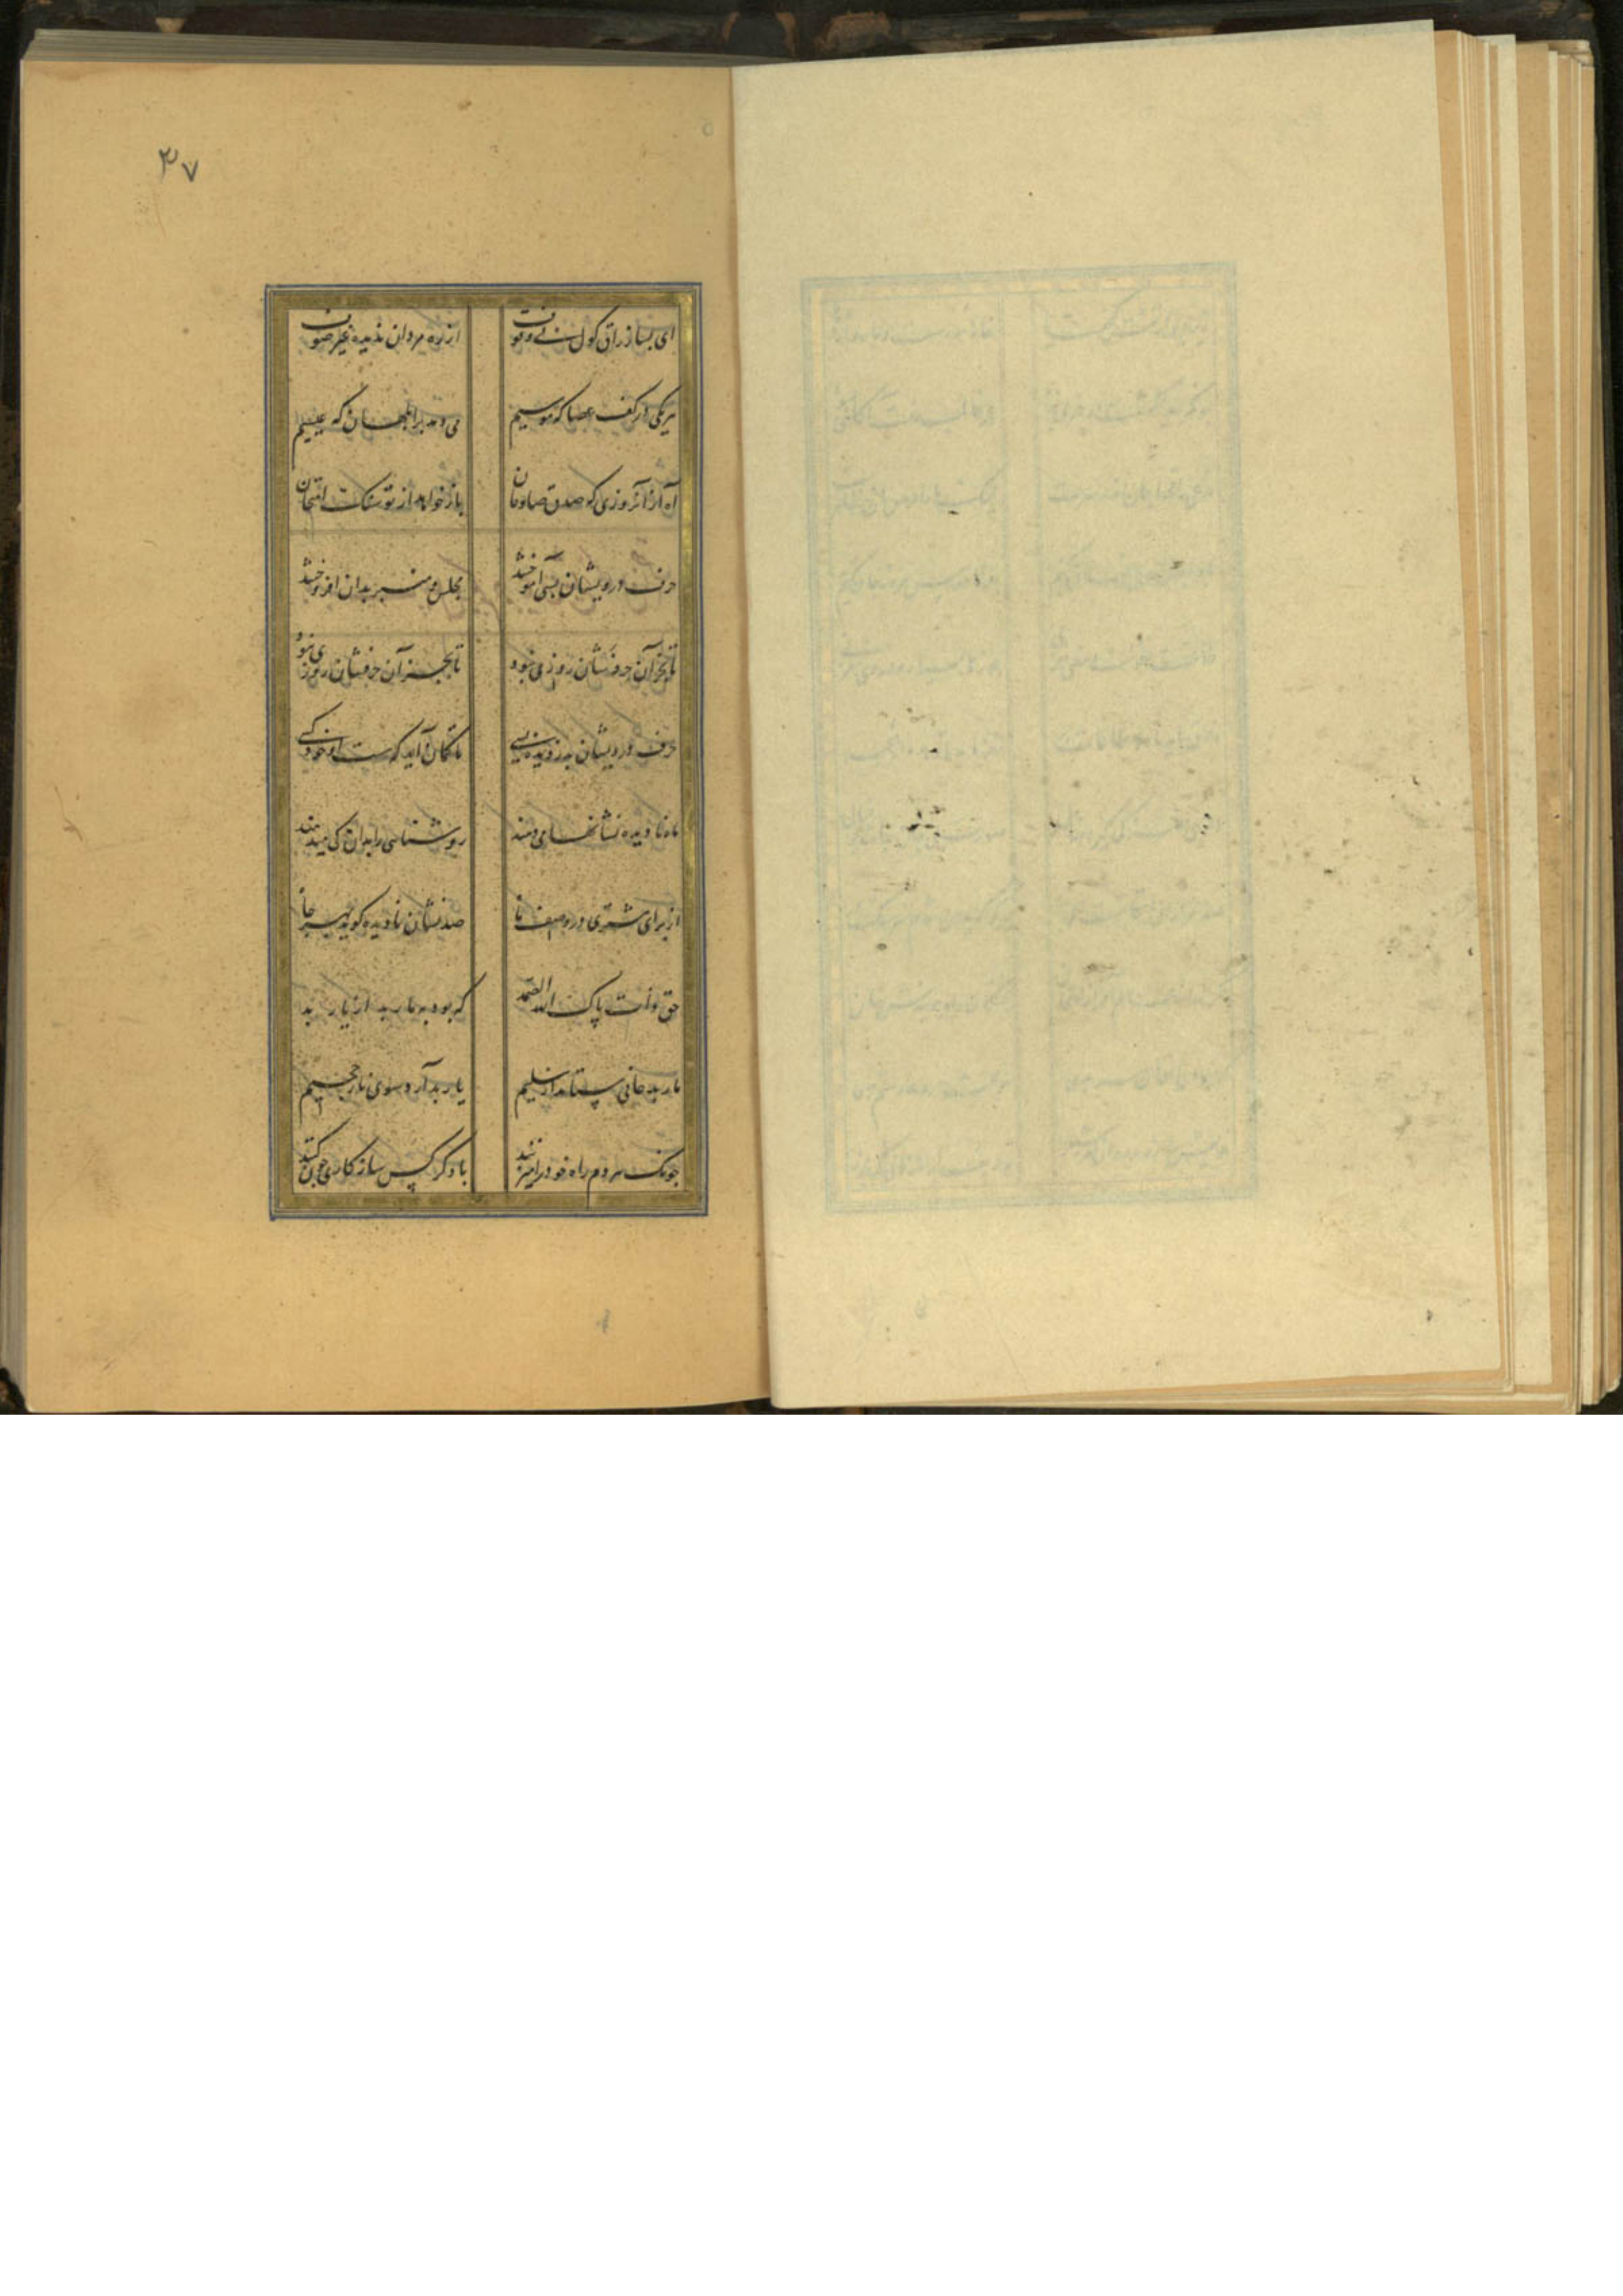 ۳۷
ای بسا زراق کول بی وقوف از ره مردان ندیده غیر صوف
هر یکی در کف عصا که موسیم می دمد بر ابلهان که عیسیم
آه از آنروزی که صدق صادقان باز خواهد از تو سنگ امتحان
حرف درویشان بسی آموختند مجلس و منبر بدان افروختند
یا بجز آن حرفشان روزی نبود یا بجز آن حرفشان روزی نبود
حرف درویشان بدزدیده بسی تا گمان آید که هست او خود کسی
ماه نادیده نشانها می دهند روشناسی را بدان کی می دهند
از برای مشتری در وصف ما صد نشان نادیده گوید بهر جا
حق ذات پاک الله الصمد که بود به مار بد از یار بد
مار بد جانی ستاند از سلیم یار بد آرد سوی نار جحیم
چونک مردم راه خود را میزنند با دگر کس سازگاری چون کنند